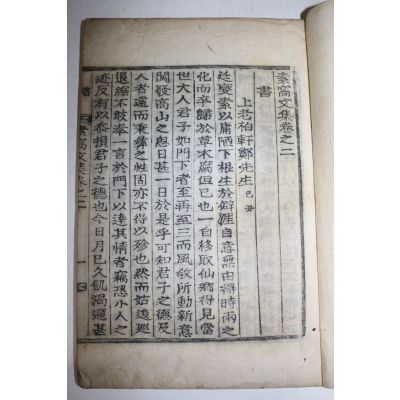 素窩文集卷之二
書
上老柏軒鄭先生 己丑
廷燮素以庸陋下根生於僻涯自意無由得時雨之
化而卒歸於草木腐但已也一自移取仙鄉得見當
世大人君子如門下者至再至三而風敎所動新意
開發高山之思日甚一日於是乎可知君子之德及
人者遠而秉彝之性固亦不得以殄也然而姑逡巡
退縮不敢奉一言於門下以達其情者竊恐小人之
迹反有以忝損君子之德也今日月已久飢渴逼甚
書
素窩文集卷之二
一